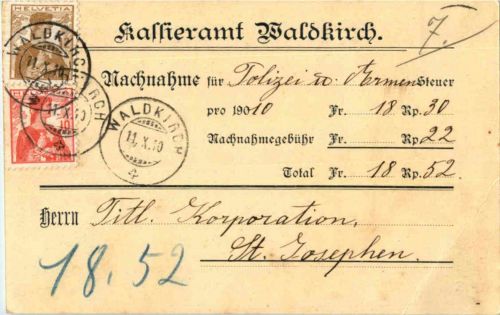 HELVETIA
Kassieramt Waldkirch.
7.
WALDKIRCH
11.X.10
Nachnahme für Polizei u. Armen Steuer
pro 1910 Fr. 18 Rp. 30
Nachnahmegebühr Rp. 22
Total Fr. 18 Rp. 52
WALDKIRCH
11.X.10
Herrn Titl. Korporation,
St. Josephen.
18.52